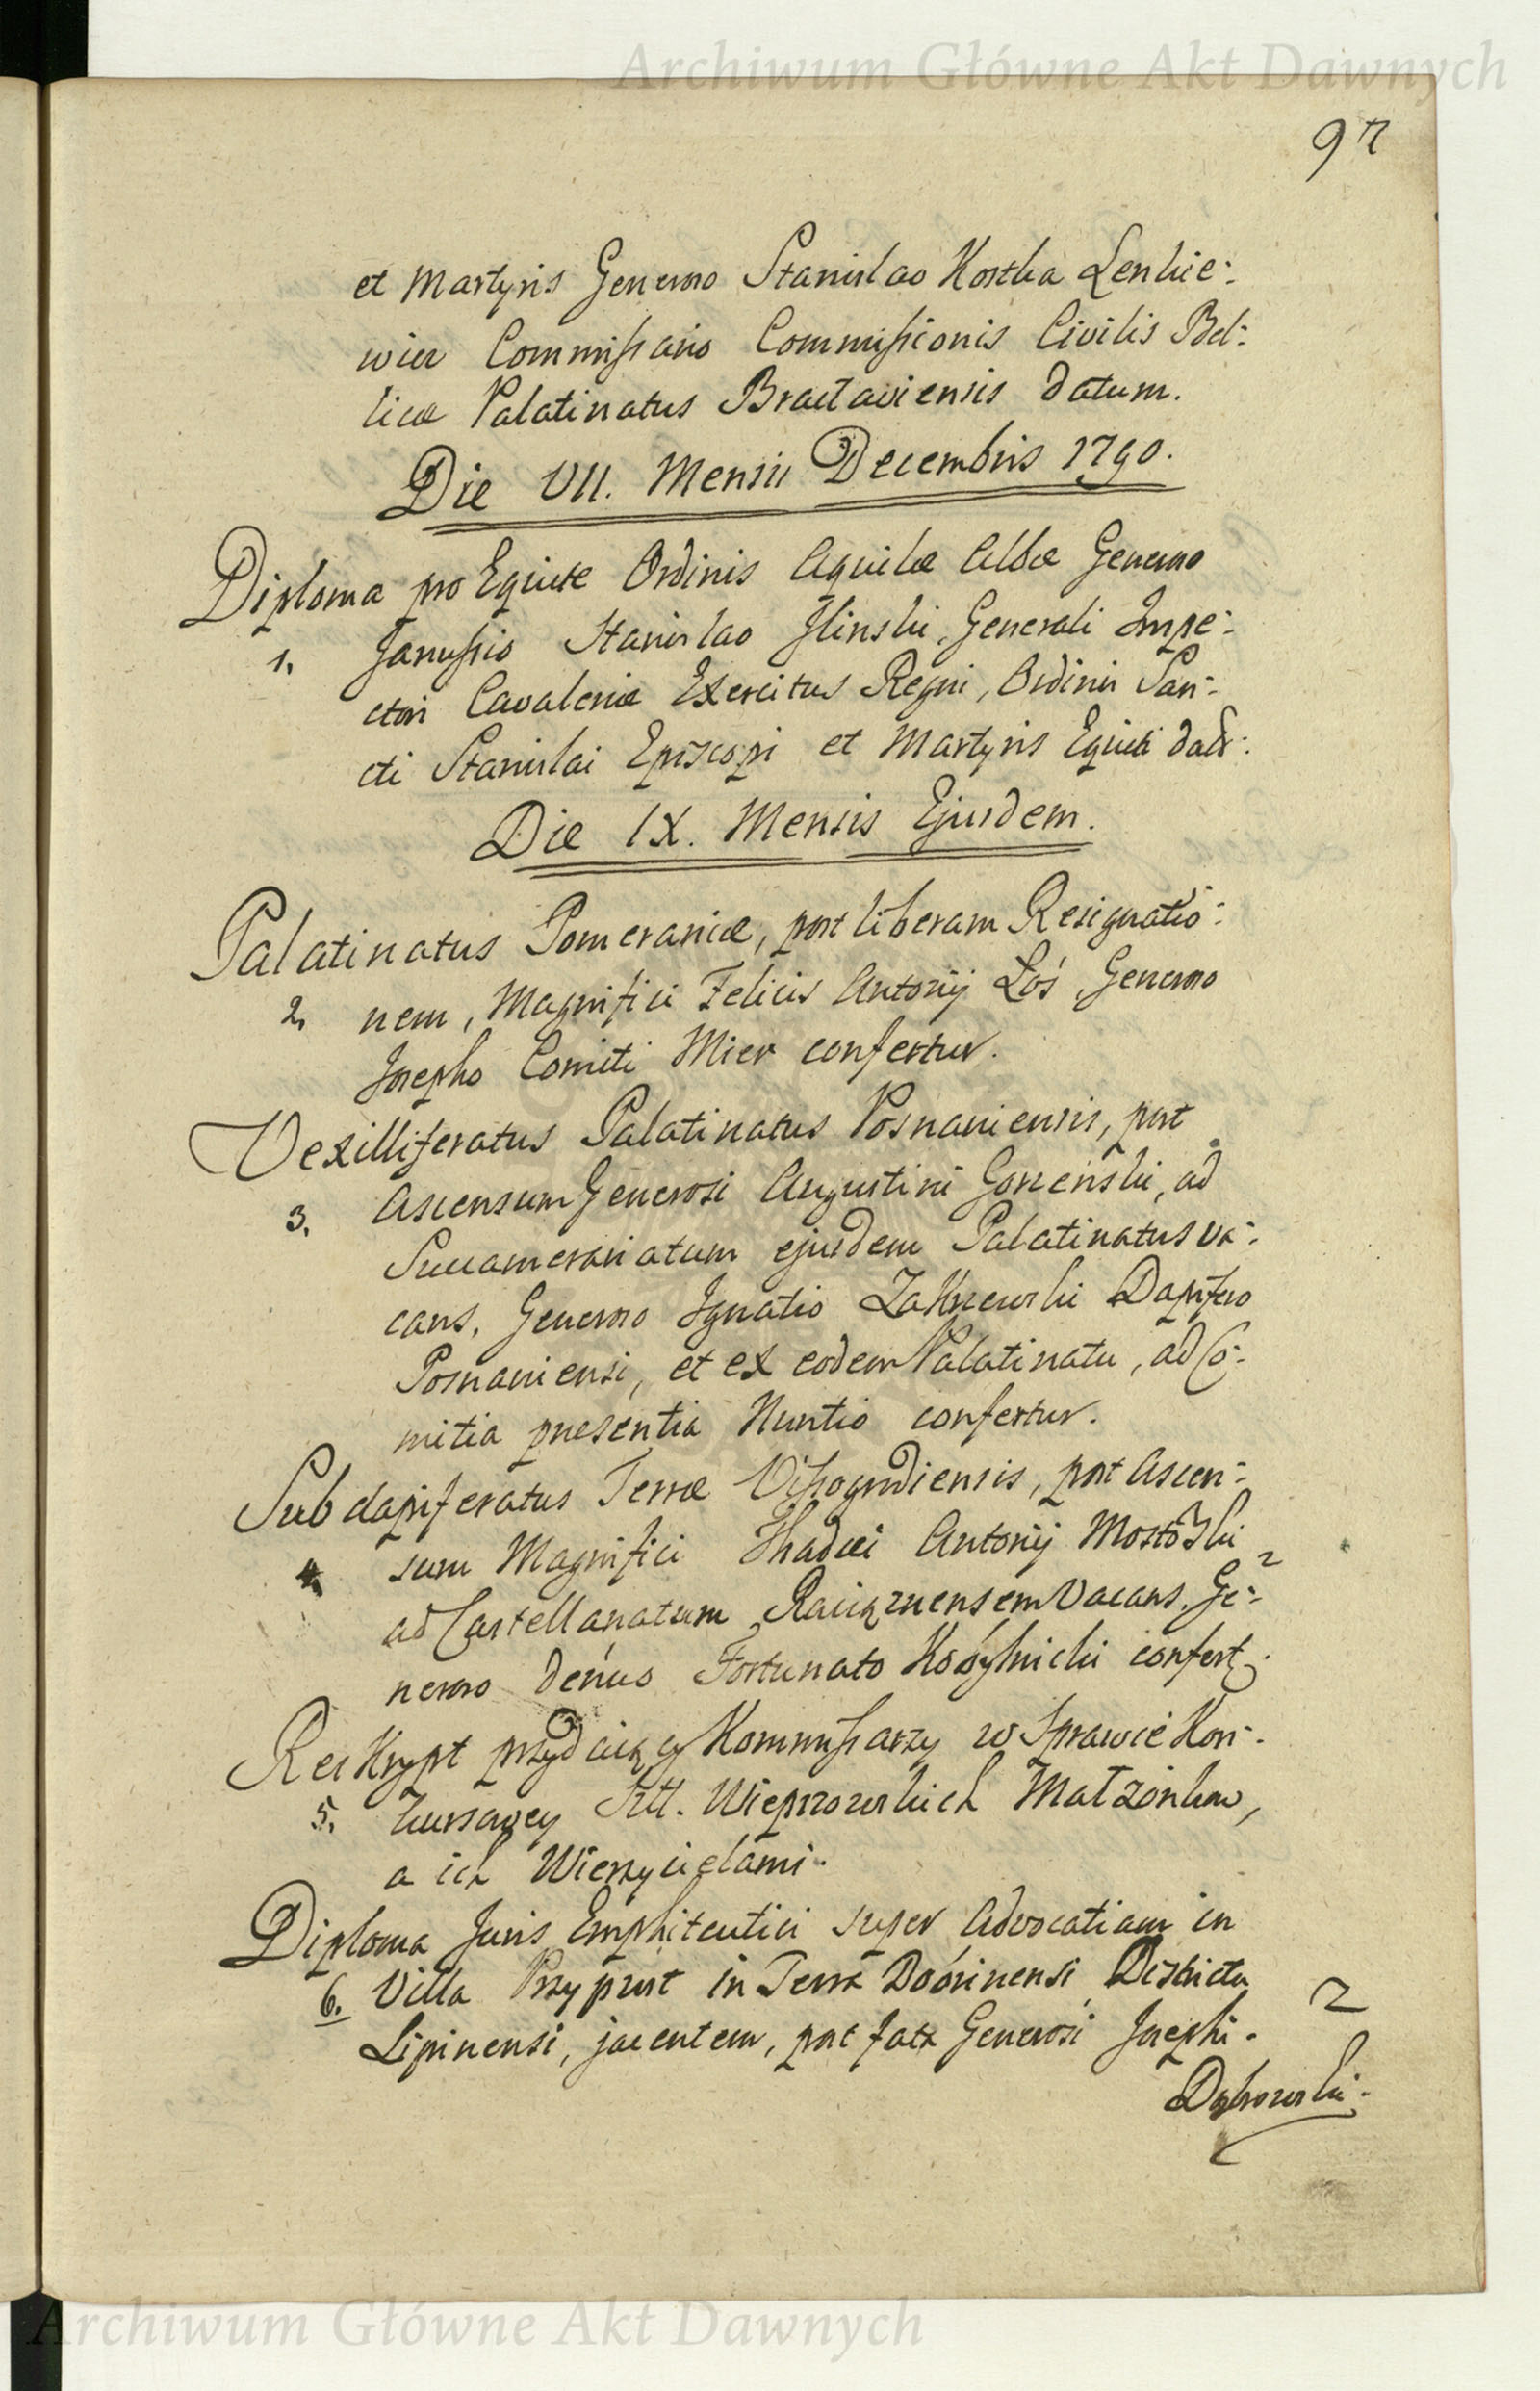 Archiwum Główne Akt Dawnych
97
et Martyris Generoso Stanislao Kostka Lenkie-
wicz Commissario Commissionis Civilis Bel-
licæ Palatinatus Braclaviensis datum.
Die VII. Mensis Decembris 1790.
Diploma pro Equite Ordinis Aquilæ Albæ Generoso
1. Janussio Stanislao Ilinski, Generali Inspe-
ctori Cavaleriæ Exercitus Regni, Ordinis San-
cti Stanislai Episcopi et Martyris Equiti datr:
Die IX. Mensis Ejusdem.
Palatinatus Pomeraniæ, post liberam Resignatio-
2. nem, Magnifici Felicis Antonij Łoś, Generoso
Josepho Comiti Mier confertur.
Vexilliferatus Palatinatus Posnaniensis, post
3. Ascensum Generosi Augustini Gorzeński, ad
Succamerariatum ejusdem Palatinatus va-
cans, Generoso Ignatio Zakrzewski Dapifero
Posnaniensi, et ex eodem Palatinatu, ad Co-
mitia præsentia Nuntio confertur.
Subdapiferatus Terræ Vissogrodiensis, post Ascen-
4. sum Magnifici Thadæi Antonij Mostowski
ad Castellanatum Raciąznensem vacans, Ge-
neroso Fortunato Kobylnicki confert.
Reskrypt przydaiący Kommissarzy w Sprawie Kon-
5. kursowey Wieprzowskich Małżonkow,
a ich Wierzycielami.
Diploma Juris Emphiteutici super Advocatiam in
6. Villa Przypust in Terra Dobrinensi Districtu
Lipinensi, jacentem, post fata Generosi Josephi
Dąbrowski
Archiwum Główne Akt Dawnych